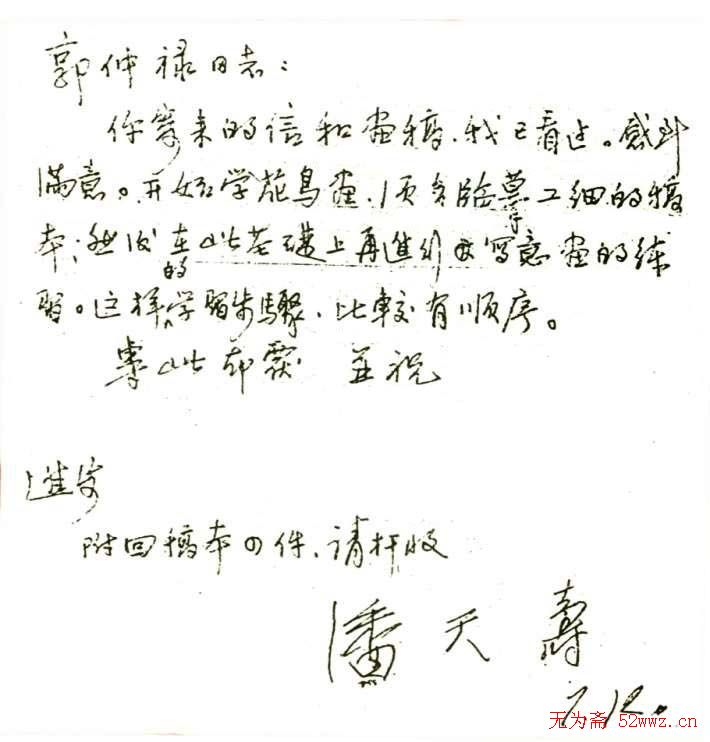 郭仲禄同志：
你寄来的信和画稿，我已看过。感到
满意。开始学花鸟画，须多临摹工细的稿
本；然后在此基础上再进行写意画的练
习。这样的学习步骤，比较有顺序。
专此即覆 並祝
进步
附回稿本四件，请检收
潘天寿
7.12.
无为斋 52wwz.cn